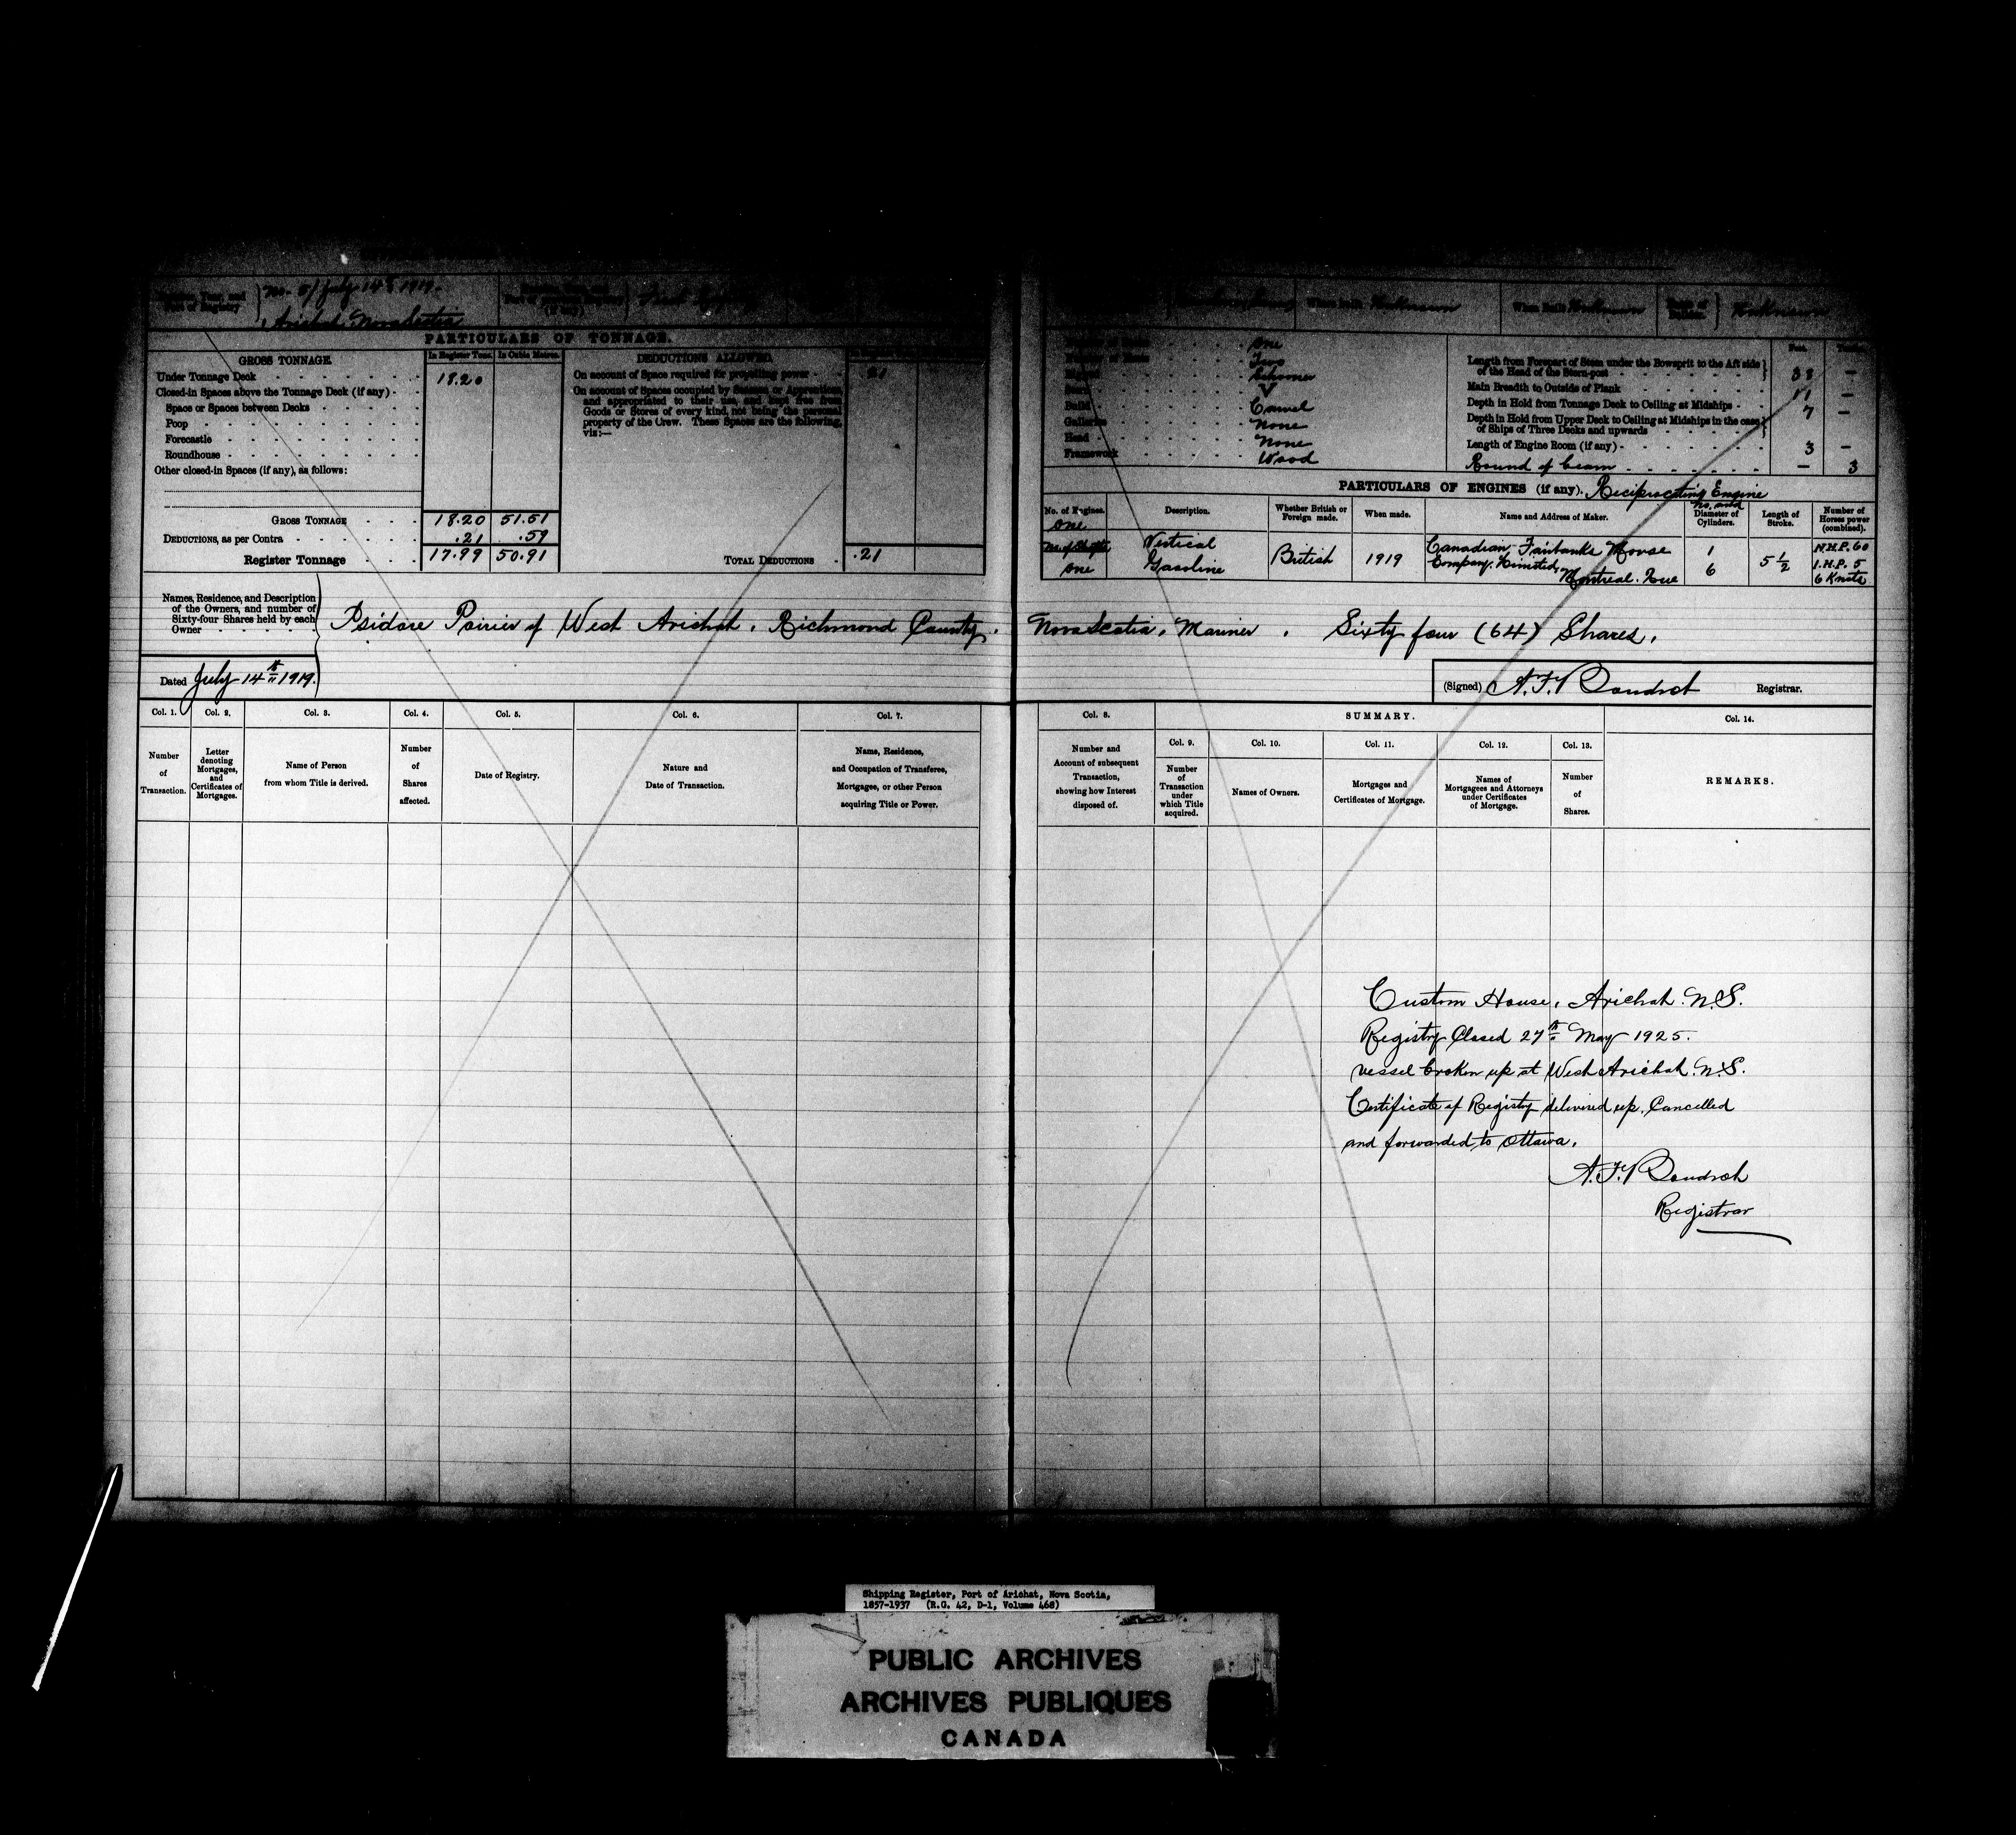 No. 5/ July 14th 1919.
Port of Registry
Arichat, Nova Scotia
When built Unknown
Where Built Unknown
Unknown
PARTICULARS OF TONNAGE.
GROSS TONNAGE.
In Register Tons.
In Cubic Metres.
DEDUCTIONS ALLOWED
Under Tonnage Deck
18.20
On account of Space required for propelling power
.21
Closed-in Spaces above the Tonnage Deck (if any)
Space or Spaces between Decks
Poop
Forecastle
Roundhouse
Other closed-in Spaces (if any), as follows:
On account of Spaces occupied by Seamen or Apprentices
and appropriated to their use, and kept free from
Goods or Stores of every kind, not being the personal
property of the Crew. These Spaces are the following,
viz:—
GROSS TONNAGE
18.20 51.51
DEDUCTIONS, as per Contra
.21 .59
Register Tonnage
17.99 50.91
TOTAL DEDUCTIONS
.21
one
Two
Schooner
Build
Carvel
Galleries
None
Head
None
Framework
Wood
Feet.
Length from Forepart of Stem under the Bowsprit to the Aft side
of the Head of the Stern-post
38 —
Main Breadth to Outside of Plank
11 —
Depth in Hold from Tonnage Deck to Ceiling at Midships
7 —
Depth in Hold from Upper Deck to Ceiling at Midships in the case
of Ships of Three Decks and upwards
Length of Engine Room (if any)
3 —
Round of beam
— 3
PARTICULARS OF ENGINES (if any). Reciprocating Engine
No. of Engines.
one
No. of Shafts
one
Description.
Vertical
Gasoline
Whether British or
Foreign made.
British
When made.
1919
Name and Address of Maker.
Canadian Fairbanks Morse
Company, Limited,
Montreal. Que
No. and
Diameter of
Cylinders.
1
6
Length of
Stroke.
5 1/2
Number of
Horses power
(combined).
N.H.P. 60
I.H.P. 5
6 Knots
Names, Residence, and Description
of the Owners, and number of
Sixty-four Shares held by each
Owner
Isidore Poirier of West Arichat, Richmond County, Nova Scotia, Mariner. Sixty four (64) Shares.
Dated July 14th 1919.
(Signed) A. F. Boudrot Registrar.
Col. 1.
Number
of
Transaction.
Col. 2.
Letter
denoting
Mortgages,
and
Certificates of
Mortgages.
Col. 3.
Name of Person
from whom Title is derived.
Col. 4.
Number
of
Shares
affected.
Col. 5.
Date of Registry.
Col. 6.
Nature and
Date of Transaction.
Col. 7.
Name, Residence,
and Occupation of Transferee,
Mortgagee, or other Person
acquiring Title or Power.
Col. 8.
Number and
Account of subsequent
Transaction,
showing how Interest
disposed of.
SUMMARY.
Col. 9.
Number
of
Transaction
under
which Title
acquired.
Col. 10.
Names of Owners.
Col. 11.
Mortgages and
Certificates of Mortgage.
Col. 12.
Names of
Mortgagees and Attorneys
under Certificates
of Mortgage.
Col. 13.
Number
of
Shares.
Col. 14.
REMARKS.
Custom House, Arichat. N.S.
Registry Closed 27th May 1925.
vessel broken up at West Arichat. N.S.
Certificate of Registry delivered up, Cancelled
and forwarded to Ottawa.
A. F. Boudrot
Registrar
Shipping Register, Port of Arichat, Nova Scotia,
1857-1937 (R.G. 42, D-1, Volume 468)
PUBLIC ARCHIVES
ARCHIVES PUBLIQUES
CANADA